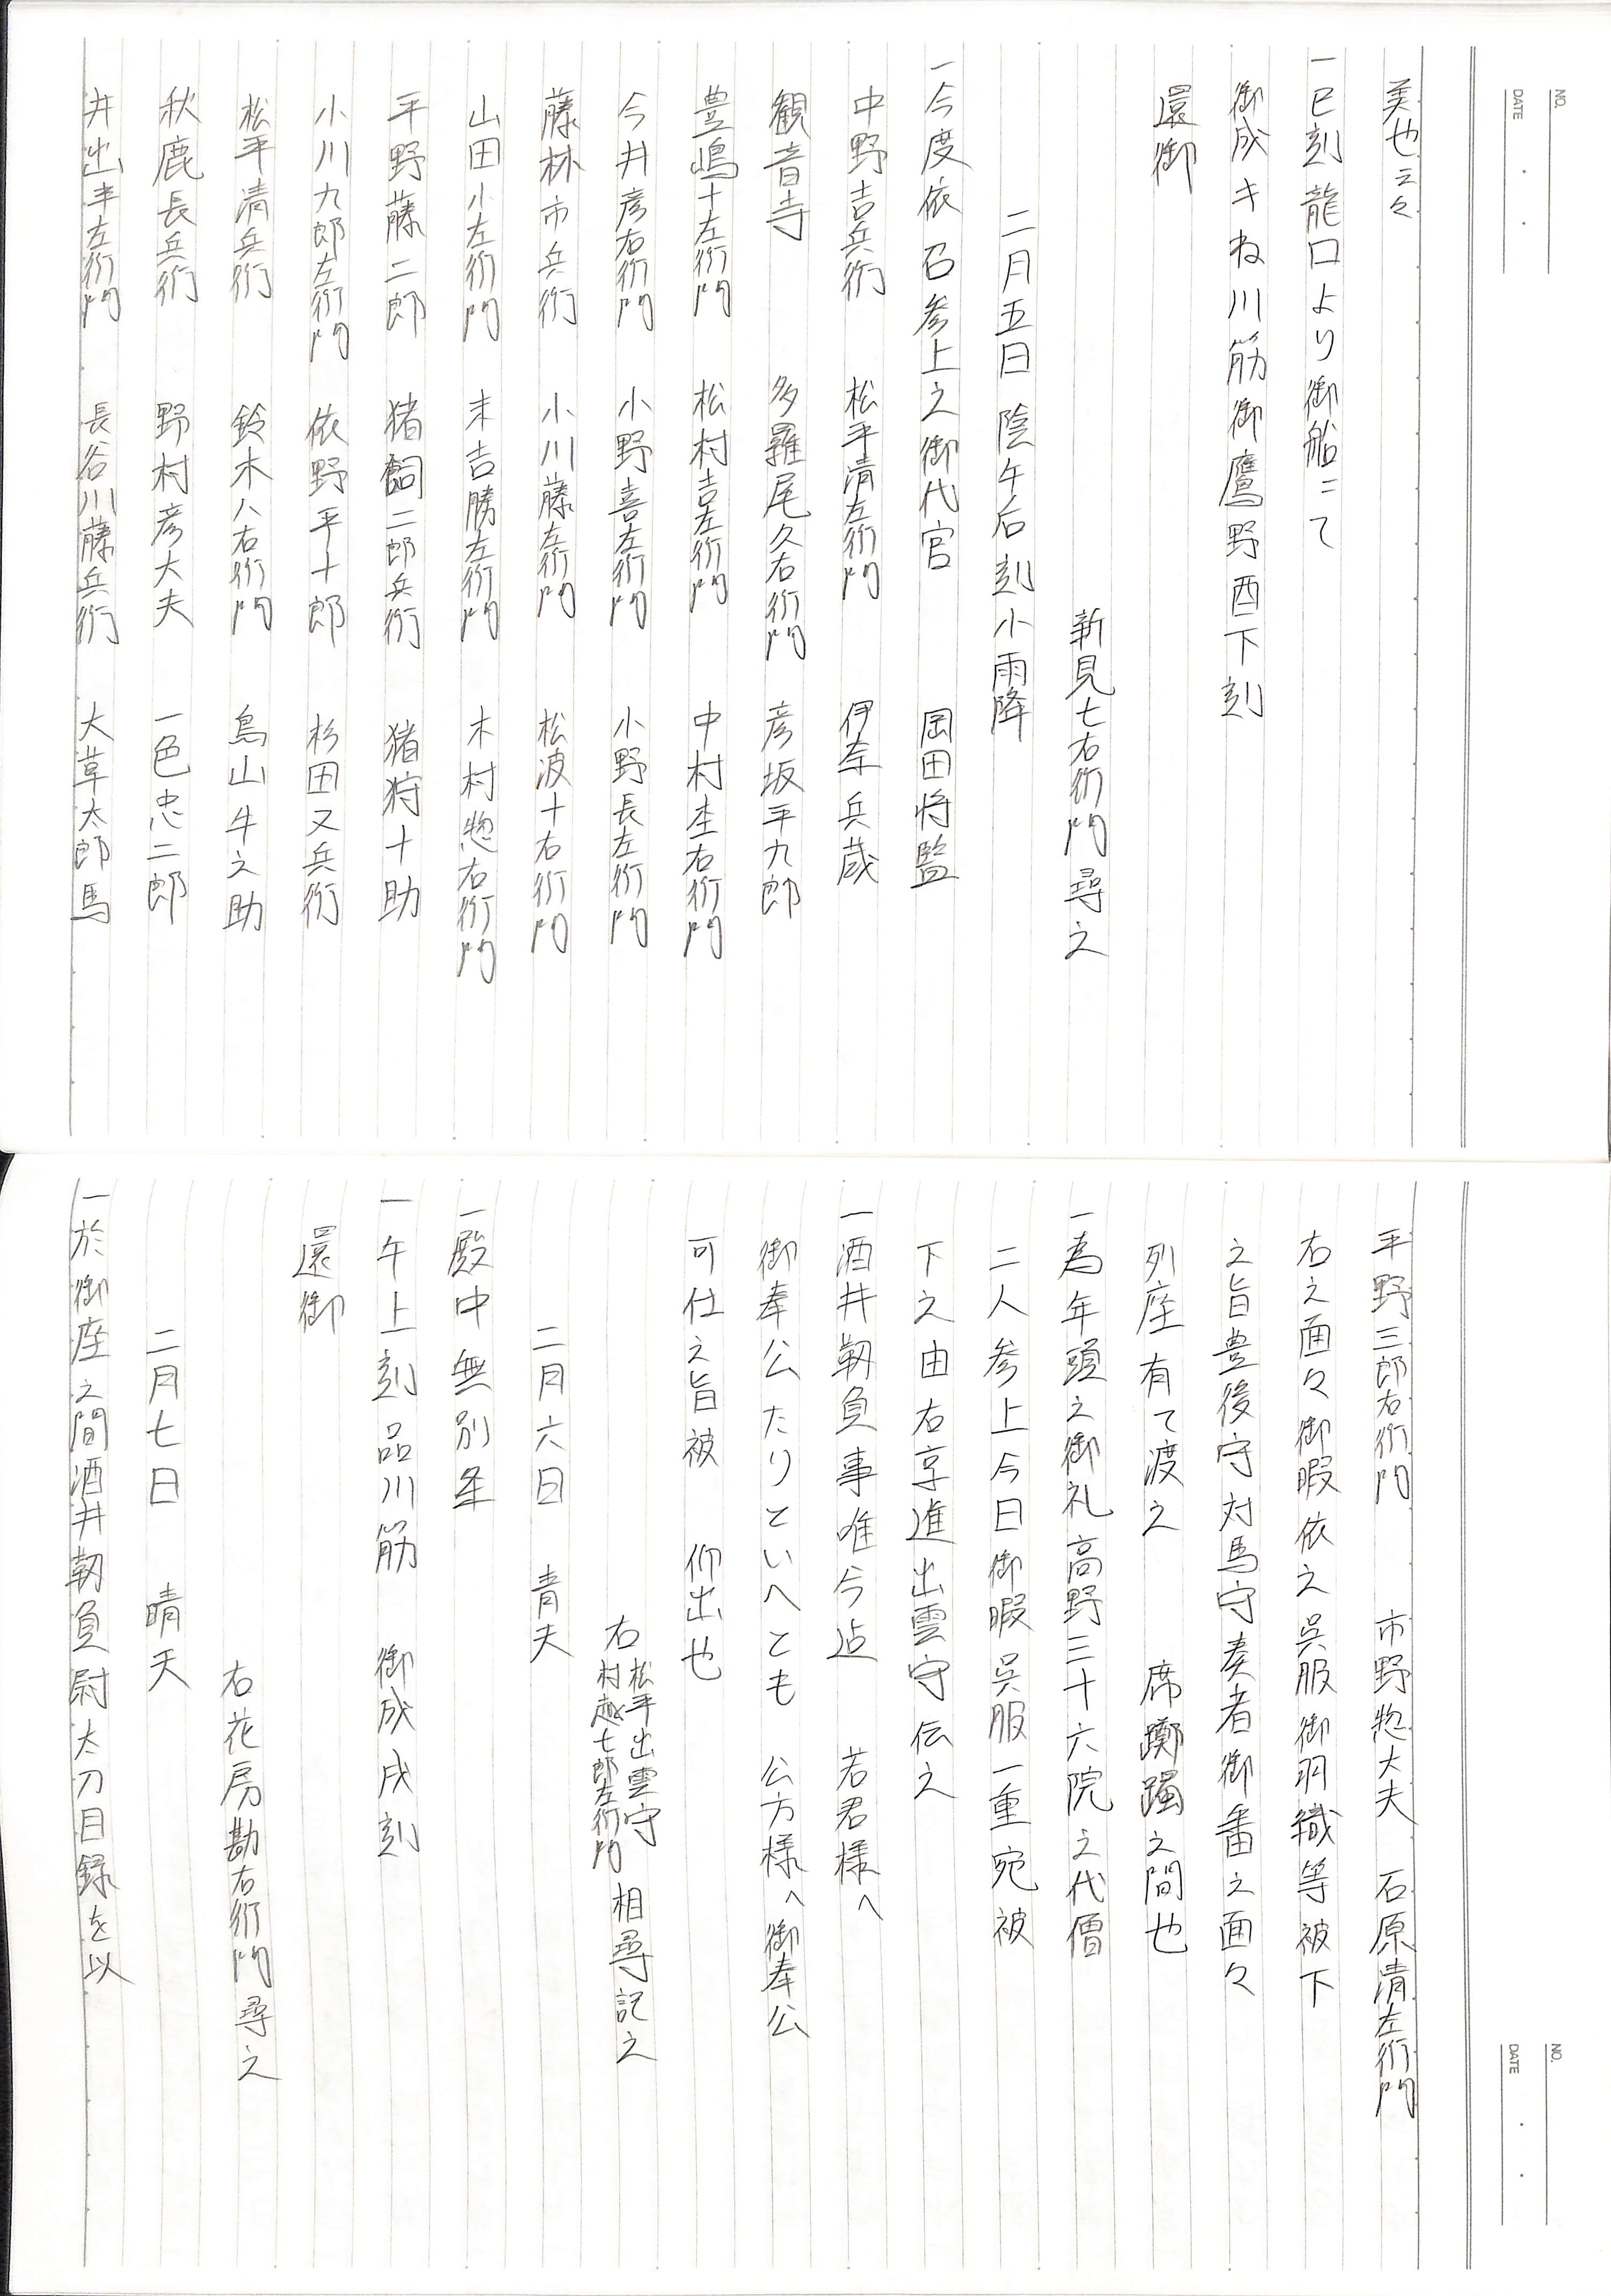 NO.
DATE
美也云々
一巳刻龍口より御船ニて
御成キね川筋御鷹野酉下刻
還御
新見七右衛門尋之
二月五日 陰午后刻小雨降
一今度依 召参上之御代官 岡田将監
中野吉兵衛 松平清左衛門 伊奈兵蔵
観音寺 多羅尾久右衛門 彦坂平九郎
豊嶋十左衛門 松村吉左衛門 中村杢右衛門
今井彦右衛門 小野喜左衛門 小野長左衛門
藤林市兵衛 小川藤左衛門 松波十右衛門
山田小左衛門 末吉勝左衛門 木村惣右衛門
平野藤二郎 猪飼二郎兵衛 猪狩十助
小川九郎左衛門 依野平十郎 杉田又兵衛
松平清兵衛 鈴木八右衛門 鳥山牛之助
秋鹿長兵衛 野村彦大夫 一色忠二郎
井出半左衛門 長谷川藤兵衛 大草太郎馬
NO.
DATE
平野三郎右衛門 市野惣大夫 石原清左衛門
右之面々御暇依之呉服御羽織等被下
之旨豊後守対馬守奏者御番之面々
列座有て渡之 席躑躅之間也
一為年頭之御礼高野三十六院之代僧
二人参上今日御暇呉服一重宛被
下之由右享進出雲守伝之
一酒井靭負事唯今迠 若君様へ
御奉公たりといへとも 公方様へ御奉公
可仕之旨被 仰出也
右松平出雲守村越七郎左衛門相尋記之
二月六日 青天
一殿中無別条
一午上刻品川筋 御成戌刻
還御
右花房勘右衛門尋之
二月七日 晴天
一於御座之間酒井靭負尉太刀目録を以